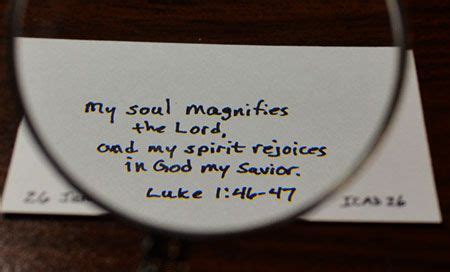 My soul magnifies
the Lord,
and my spirit rejoices
in God my Savior.
Luke 1:46-47
26 Jan
ICAD 26